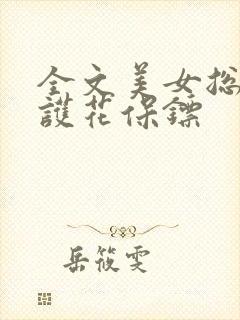 全文美女总
護花保鏢
岳筱雯